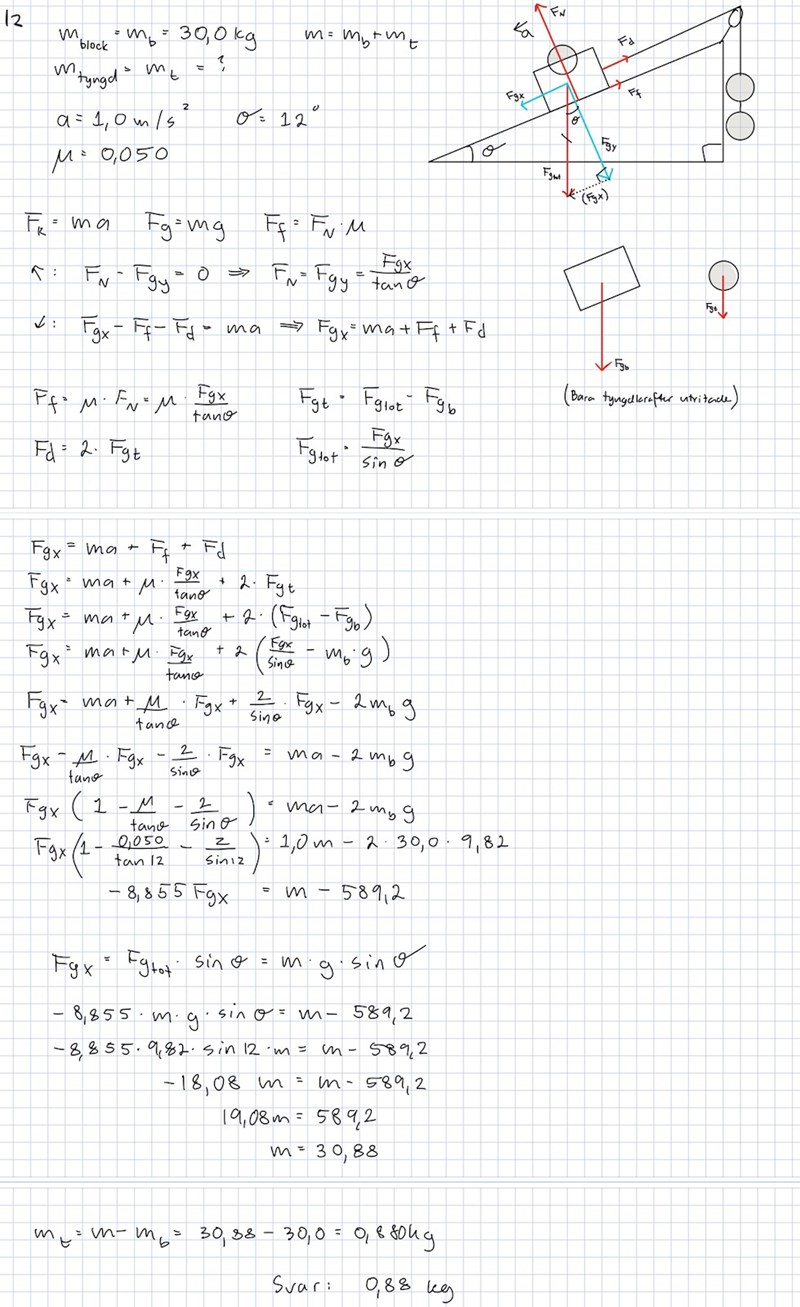 12
m_block = m_b = 30,0 kg    m = m_b + m_t
m_tyngd = m_t = ?
a = 1,0 m/s²    θ = 12°
μ = 0,050
a
F_N
F_d
F_f
F_gx
θ
F_gy
θ
F_gtot
(F_gx)
F_R = ma    F_g = mg    F_f = F_N · μ
↖: F_N - F_gy = 0 ⟹ F_N = F_gy = F_gx/tanθ
↙: F_gx - F_f - F_d = ma ⟹ F_gx = ma + F_f + F_d
F_gt
F_gb
(Bara tyngdkrafter utritade)
F_f = μ · F_N = μ · F_gx/tanθ    F_gt = F_gtot - F_gb
F_d = 2 · F_gt    F_gtot = F_gx/sin θ
F_gx = ma + F_f + F_d
F_gx = ma + μ · F_gx/tanθ + 2 · F_gt
F_gx = ma + μ · F_gx/tanθ + 2 · (F_gtot - F_gb)
F_gx = ma + μ · F_gx/tanθ + 2 (F_gx/sinθ - m_b · g)
F_gx = ma + μ/tanθ · F_gx + 2/sinθ · F_gx - 2 m_b g
F_gx - μ/tanθ · F_gx - 2/sinθ · F_gx = ma - 2 m_b g
F_gx (1 - μ/tanθ - 2/sin θ) = ma - 2 m_b g
F_gx (1 - 0,050/tan 12 - 2/sin 12) = 1,0 m - 2 · 30,0 · 9,82
- 8,855 F_gx = m - 589,2
F_gx = F_gtot · sin θ = m · g · sin θ
- 8,855 · m · g · sin θ = m - 589,2
- 8,855 · 9,82 · sin 12 · m = m - 589,2
-18,08 m = m - 589,2
19,08 m = 589,2
m = 30,88
m_t = m - m_b = 30,88 - 30,0 = 0,880 kg
Svar: 0,88 kg